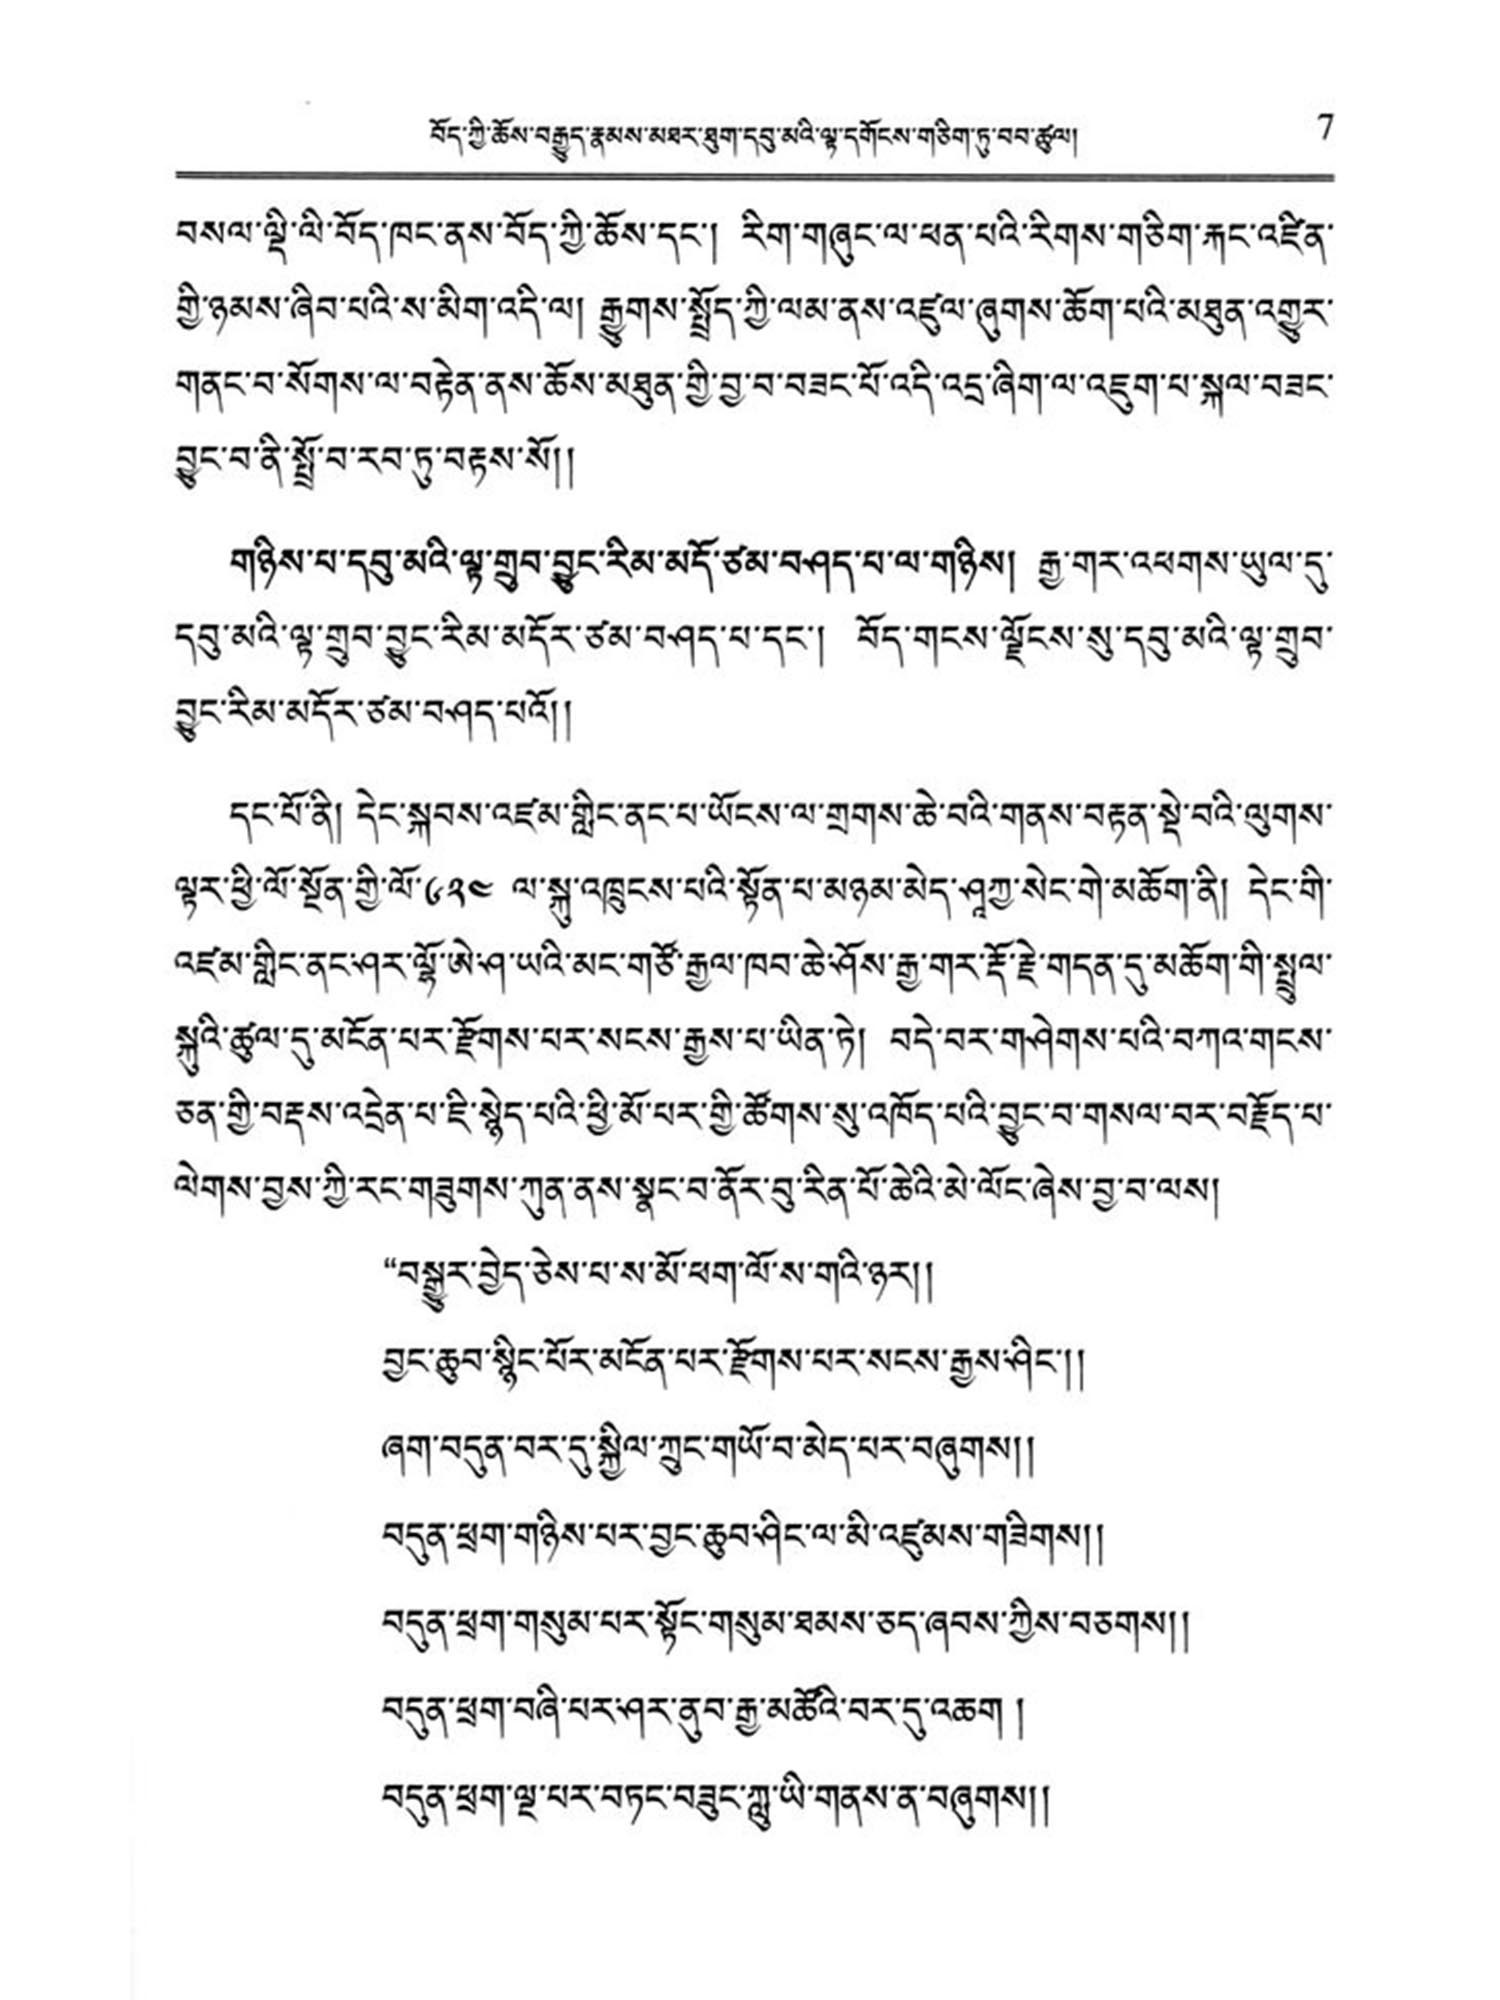 བོད་ཀྱི་ཆོས་བརྒྱུད་རྣམས་མཐར་ཐུག་དབུ་མའི་ལྟ་དགོངས་གཅིག་ཏུ་བབ་ཚུལ། 7
བསལ་ལྡི་ལི་བོད་ཁང་ནས་བོད་ཀྱི་ཆོས་དང་། རིག་གཞུང་ལ་ཕན་པའི་རིགས་གཅིག་རྐང་འཛིན་
གྱི་ཉམས་ཞིབ་པའི་ས་མིག་འདི་ལ། རྒྱུགས་སྤྲོད་ཀྱི་ལམ་ནས་འཛུལ་ཞུགས་ཆོག་པའི་མཐུན་འགྱུར་
གནང་བ་སོགས་ལ་བརྟེན་ནས་ཆོས་མཐུན་གྱི་བྱ་བ་བཟང་པོ་འདི་འདྲ་ཞིག་ལ་འཇུག་པ་སྐལ་བཟང་
བྱུང་བ་ནི་སྤྲོ་བ་རབ་ཏུ་བརྟས་སོ།།
གཉིས་པ་དབུ་མའི་ལྟ་གྲུབ་བྱུང་རིམ་མདོ་ཙམ་བཤད་པ་ལ་གཉིས། རྒྱ་གར་འཕགས་ཡུལ་དུ་
དབུ་མའི་ལྟ་གྲུབ་བྱུང་རིམ་མདོར་ཙམ་བཤད་པ་དང་། བོད་གངས་ལྗོངས་སུ་དབུ་མའི་ལྟ་གྲུབ་
བྱུང་རིམ་མདོར་ཙམ་བཤད་པའོ།།
དང་པོ་ནི། དེང་སྐབས་འཛམ་གླིང་ནང་པ་ཡོངས་ལ་གྲགས་ཆེ་བའི་གནས་བརྟན་སྡེ་བའི་ལུགས་
ལྟར་ཕྱི་ལོ་སྔོན་གྱི་ལོ་༦༢༤ ལ་སྐུ་འཁྲུངས་པའི་སྟོན་པ་མཉམ་མེད་ཤཱཀྱ་སེང་གེ་མཆོག་ནི། དེང་གི་
འཛམ་གླིང་ནང་ཤར་ལྷོ་ཨེ་ཤ་ཡའི་མང་གཙོ་རྒྱལ་ཁབ་ཆེ་ཤོས་རྒྱ་གར་རྡོ་རྗེ་གདན་དུ་མཆོག་གི་སྤྲུལ་
སྐུའི་ཚུལ་དུ་མངོན་པར་རྫོགས་པར་སངས་རྒྱས་པ་ཡིན་ཏེ། བདེ་བར་གཤེགས་པའི་བཀའ་གངས་
ཅན་གྱི་བརྡས་འདྲེན་པ་ཇི་སྙེད་པའི་ཕྱི་མོ་པར་གྱི་ཚོགས་སུ་འཁོད་པའི་བྱུང་བ་གསལ་བར་བརྗོད་པ་
ལེགས་བྱས་ཀྱི་རང་གཟུགས་ཀུན་ནས་སྣང་བ་ནོར་བུ་རིན་པོ་ཆེའི་མེ་ལོང་ཞེས་བྱ་བ་ལས།
“བསྒྱུར་བྱེད་ཅེས་པ་ས་མོ་ཕག་ལོ་ས་གའི་ཉར།།
བྱང་ཆུབ་སྙིང་པོར་མངོན་པར་རྫོགས་པར་སངས་རྒྱས་ཤིང་།།
ཞག་བདུན་བར་དུ་སྐྱིལ་ཀྲུང་གཡོ་བ་མེད་པར་བཞུགས།།
བདུན་ཕྲག་གཉིས་པར་བྱང་ཆུབ་ཤིང་ལ་མི་འཛུམས་གཟིགས།།
བདུན་ཕྲག་གསུམ་པར་སྟོང་གསུམ་ཐམས་ཅད་ཞབས་ཀྱིས་བཅགས།།
བདུན་ཕྲག་བཞི་པར་ཤར་ནུབ་རྒྱ་མཚོའི་བར་དུ་འཆག །
བདུན་ཕྲག་ལྔ་པར་བཏང་བཟུང་ཀླུ་ཡི་གནས་ན་བཞུགས།།